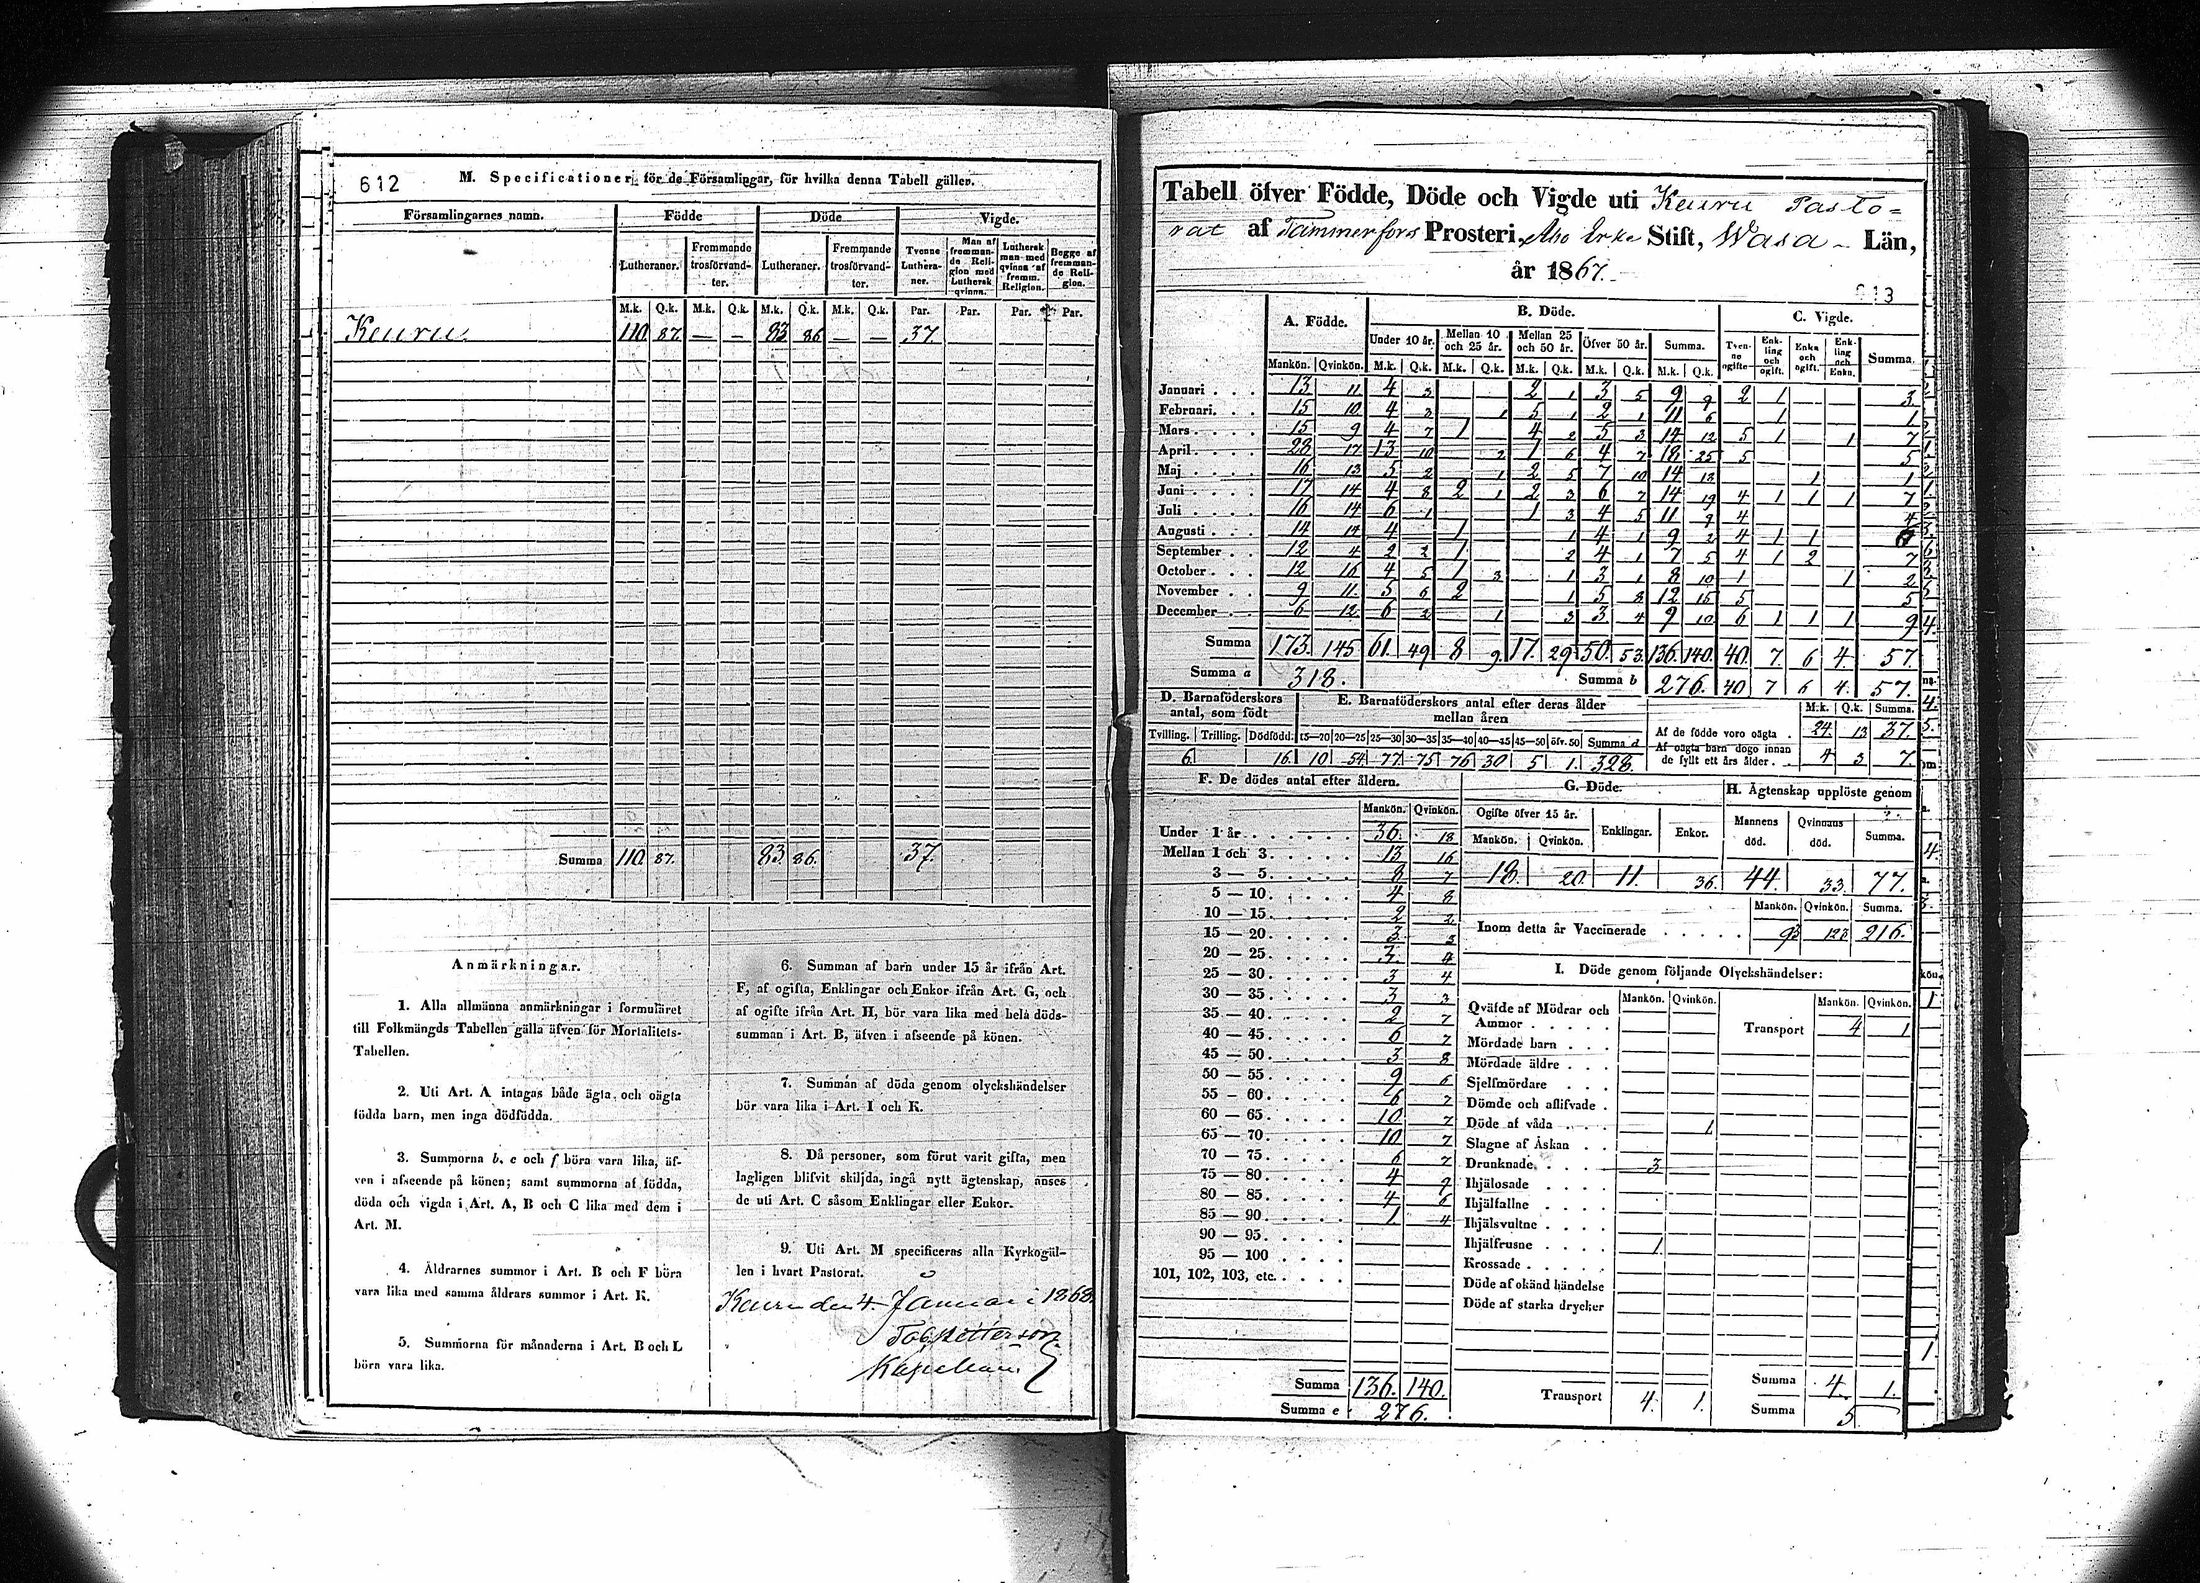 612 M. Specificationer för de Församlingar, för hvilka denna Tabell gäller.
Församlingarnes namn. Födde Döde Vigde.
Lutheraner. Fremmande trosförvandter. Lutheraner. Fremmande trosförvandter. Tvenne Lutheraner. Man af fremmande Religion med Luthersk qvinna. Luthersk man med qvinna af fremm. Religion. Begge af fremmande Religion.
M.k. Q.k. M.k. Q.k. M.k. Q.k. M.k. Q.k. Par. Par. Par. Par.
Keuru 110 87. — — 83 86 — — 37.
Summa 110 87. 83. 86. 37.
Anmärkningar.
1. Alla allmänna anmärkningar i formuläret
till Folkmängds Tabellen gälla äfven för Mortalitets-
Tabellen.
2. Uti Art. A intagas både ägta och oägta
födda barn, men inga dödfödda.
3. Summorna b, c och f böra vara lika, äf-
ven i afseende på könen; samt summorna af födda,
döda och vigda i Art. A, B och C lika med dem i
Art. M.
4. Åldrarnes summor i Art. B och F böra
vara lika med samma åldrars summor i Art. K.
5. Summorna för månaderna i Art. B och L
böra vara lika.
6. Summan af barn under 15 år ifrån Art.
F, af ogifta, Enklingar och Enkor ifrån Art. G, och
af ogifte ifrån Art. H, bör vara lika med hela döds-
summan i Art. B, äfven i afseende på könen.
7. Summan af döda genom olyckshändelser
bör vara lika i Art. I och K.
8. Då personer, som förut varit gifta, men
lagligen blifvit skiljda, ingå nytt ägtenskap, anses
de uti Art. C såsom Enklingar eller Enkor.
9. Uti Art. M specificeras alla Kyrkogäl-
len i hvart Pastorat.
Keuru den 4 Januari 1868.
Tabell öfver Födde, Döde och Vigde uti Keuru Pasto-
rat af Tammerfors Prosteri, Abo Erke Stift, Wasa Län,
år 1867.
613
A. Födde. B. Döde. C. Vigde.
Under 10 år. Mellan 10 och 25 år. Mellan 25 och 50 år. Öfver 50 år. Summa. Tvenne ogifte Enkling och ogift. Enka och ogift. Enkling och Enka. Summa.
Mankön. Qvinkön. M.k. Q.k. M.k. Q.k. M.k. Q.k. M.k. Q.k. M.k. Q.k.
Januari 13 11 4 3 2 1 3 5 9 9 2 1 3
Februari 15 10 4 3 1 5 1 2 1 11 6 1 1
Mars 15 9 4 7 1 4 2 5 3 14 12 5 1 1 7
April 28 17 13 10 2 1 6 4 7 18 25 5 5
Maj 16 13 5 2 1 2 5 7 10 14 18 1 1
Juni 17 14 4 8 2 1 2 3 6 7 14 19 4 1 1 1 7
Juli 16 14 6 1 1 3 4 5 11 9 4 4
Augusti 14 14 4 1 1 4 1 9 2 4 1 1 6
September 12 4 2 2 1 2 4 1 7 5 4 1 2 7
October 12 16 4 5 1 3 1 3 1 8 10 1 1 2
November 9 11 5 6 2 1 5 8 12 15 5 5
December 6 12 6 2 1 3 3 4 9 10 6 1 1 1 9
Summa 173. 145 61. 49 8 9. 17. 29 50. 53. 136. 140. 40. 7. 6 4. 57.
Summa a 318. Summa b 276. 40 7 6 4. 57.
D. Barnaföderskors antal, som födt
E. Barnaföderskors antal efter deras ålder mellan åren
M.k. Q.k. Summa.
Tvilling. Trilling. Dödfödd. 15—20 20—25 25—30 30—35 35—40 40—45 45—50 öfv. 50 Summa d
6. 16. 10 54 77. 75 76 30 5 1. 328.
Af de födde voro oägta 24. 13 37.
Af oägta barn dogo innan de fyllt ett års ålder 4 3 7
F. De dödes antal efter åldern.
Mankön. Qvinkön.
Under 1 år 36. 18
Mellan 1 och 3 13 16
3 — 5 8 7
5 — 10 4 8
10 — 15 2 2
15 — 20 3 3
20 — 25 3 4
25 — 30 3 4
30 — 35 3 3
35 — 40 2 7
40 — 45 6 7
45 — 50 3 8
50 — 55 9 6
55 — 60 6 7
60 — 65 10 7
65 — 70 10 7
70 — 75 6 7
75 — 80 4 9
80 — 85 4 6
85 — 90 1 4
90 — 95
95 — 100
101, 102, 103, etc.
Summa 136. 140.
Summa e 276.
G. Döde.
Ogifte öfver 15 år. Enklingar. Enkor.
Mankön. Qvinkön.
18. 20. 11. 36.
H. Ägtenskap upplöste genom
Mannens död. Qvinnans död. Summa.
44. 33. 77.
Mankön. Qvinkön. Summa.
Inom detta år Vaccinerade 216.
I. Döde genom följande Olyckshändelser:
Mankön. Qvinkön. Mankön. Qvinkön.
Qväfde af Mödrar och Ammor
Transport 4 1
Mördade barn
Mördade äldre
Sjelfmördare
Dömde och aflifvade
Döde af våda 1
Slagne af Åskan
Drunknade 3
Ihjälosade
Ihjälfallne
Ihjälsvultne
Ihjälfrusne 1
Krossade
Döde af okänd händelse
Döde af starka drycker
Transport 4. 1.
Summa 4. 1.
Summa 5